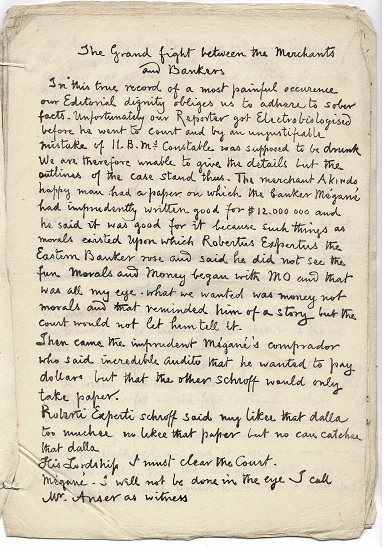 The Grand fight between the Merchants
and Bankers
In this true record of a most painful occurence
our Editorial dignity obliges us to adhere to sober
facts. Unfortunately our Reporter got Electrobiologised
before he went to court and by an unjustifiable
mistake of H.B.Ms Constable was supposed to be drunk
We are therefore unable to give the details but the
outlines of the case stand thus. The merchant
happy man had a paper on which the banker Mégané
had imprudently written good for $12.000 000 and
he said it was good for it because such things as
morals existed upon which Robertus Expertus the
Eastern Banker rose and said he did not see the
fun Morals and Money began with MO and that
was all my eye. what we wanted was money not
morals and that reminded him of a story but the
court would not let him tell it.
Then came the imprudent Mégané's comprador
who said incredibile audito that he wanted to pay
dollars but that the other schroff would only
take paper.
Roberti Experti schroff said my likee that dalla
too muchee no likee that paper but no can catchee
that dalla
His Lordship I must clear the Court.
Mégané. I will not be done in the eye I call
Mr. Anser as witness